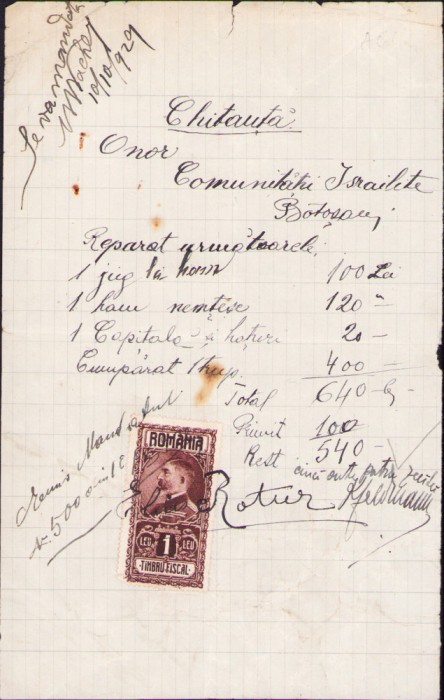 Se va mandata
10/10/929
Chitanță
Onor
Comunități Israilite
Botoșani
Reparat următoarele
1 jug la ham 100 Lei
1 ham nemțesc 120 "
1 Capitala și hățuri 20 -
Cumpărat 1 400 -
Total 640 -
Primit 100
Rest 540 -
cinci sute patru zeci lei
Remis Mandatul
No 500
ROMÂNIA
LEU 1 LEU
TIMBRU FISCAL
Rotur